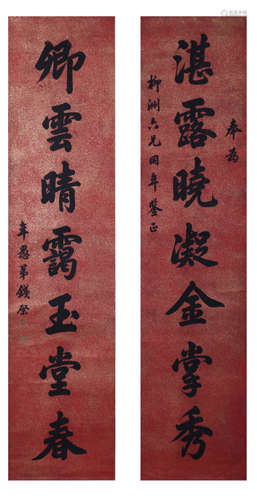 奉为
湛露晓凝金掌秀
柳洲六兄同年鉴正
卿雲晴靄玉堂春
年愚弟錢棨